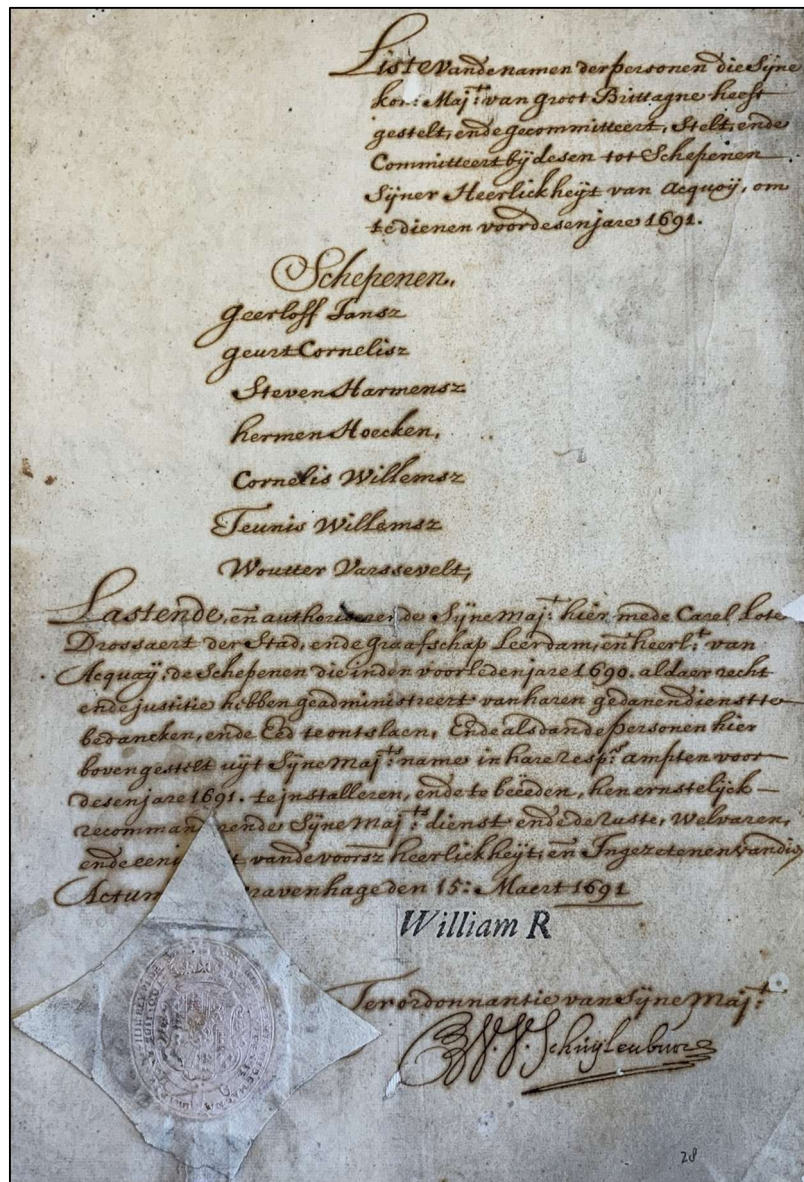 Liste vande namen der personen die Sÿne
kon: Maj:t van Groot Brittagne heeft
gestelt, ende gecommitteert, Stelt, ende
Committeert bÿ desen tot Schepenen
Sÿner Heerlickheÿt van Acquoÿ, om
te dienen voor desen jare 1691.
Schepenen,
Geerloff Jansz
Geurt Cornelisz
Steven Harmensz
hermen Hoecken,
Cornelis Willemsz
Teunis Willemsz
Woutter Varssevelt,
Lastende, en̄ authoriserende Sÿne Maj:t hier mede Carel Lote
Drossaert der Stad, ende Graafschap Leerdam, en̄ heerl:t van
Acquaÿ, de Schepenen die inden voorleden jare 1690. aldaer recht
ende justitie hebben geadministreert van haren gedanen dienst te
bedancken, ende Eed te ontslaen, Ende als dan de personen hier
boven gestelt uÿt Sÿne Maj:ts name in hare resp:e ampten voor
desen jare 1691. te installeren, ende te beëeden, hen ernstelijck
Sÿne Maj:ts dienst ende de ruste, Welvaren,
ende vande voorsz heerlickheÿt, en̄ Ingezetenen vandien
Actum den 15: Maert 1691
William R
Ter ordonnantie van Sÿne Maj:t
W. V. Schuÿlenburg
28